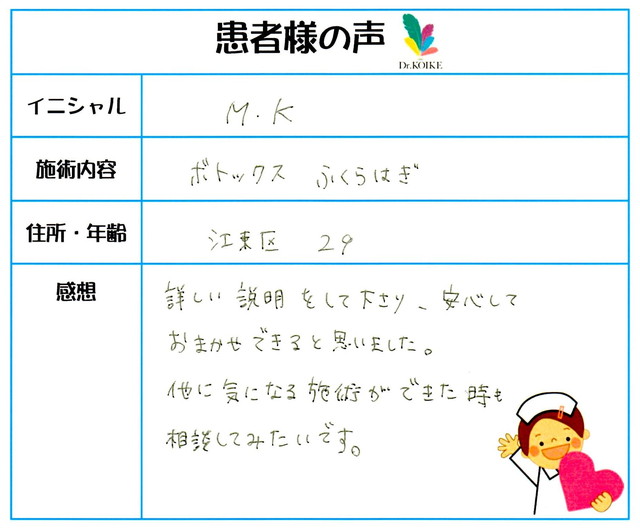 患者様の声
Dr.KOIKE
イニシャル
M.K
施術内容
ボトックス ふくらはぎ
住所・年齢
江東区 29
感想
詳しい説明をして下さり、安心して
おまかせできると思いました。
他に気になる施術ができた時も
相談してみたいです。